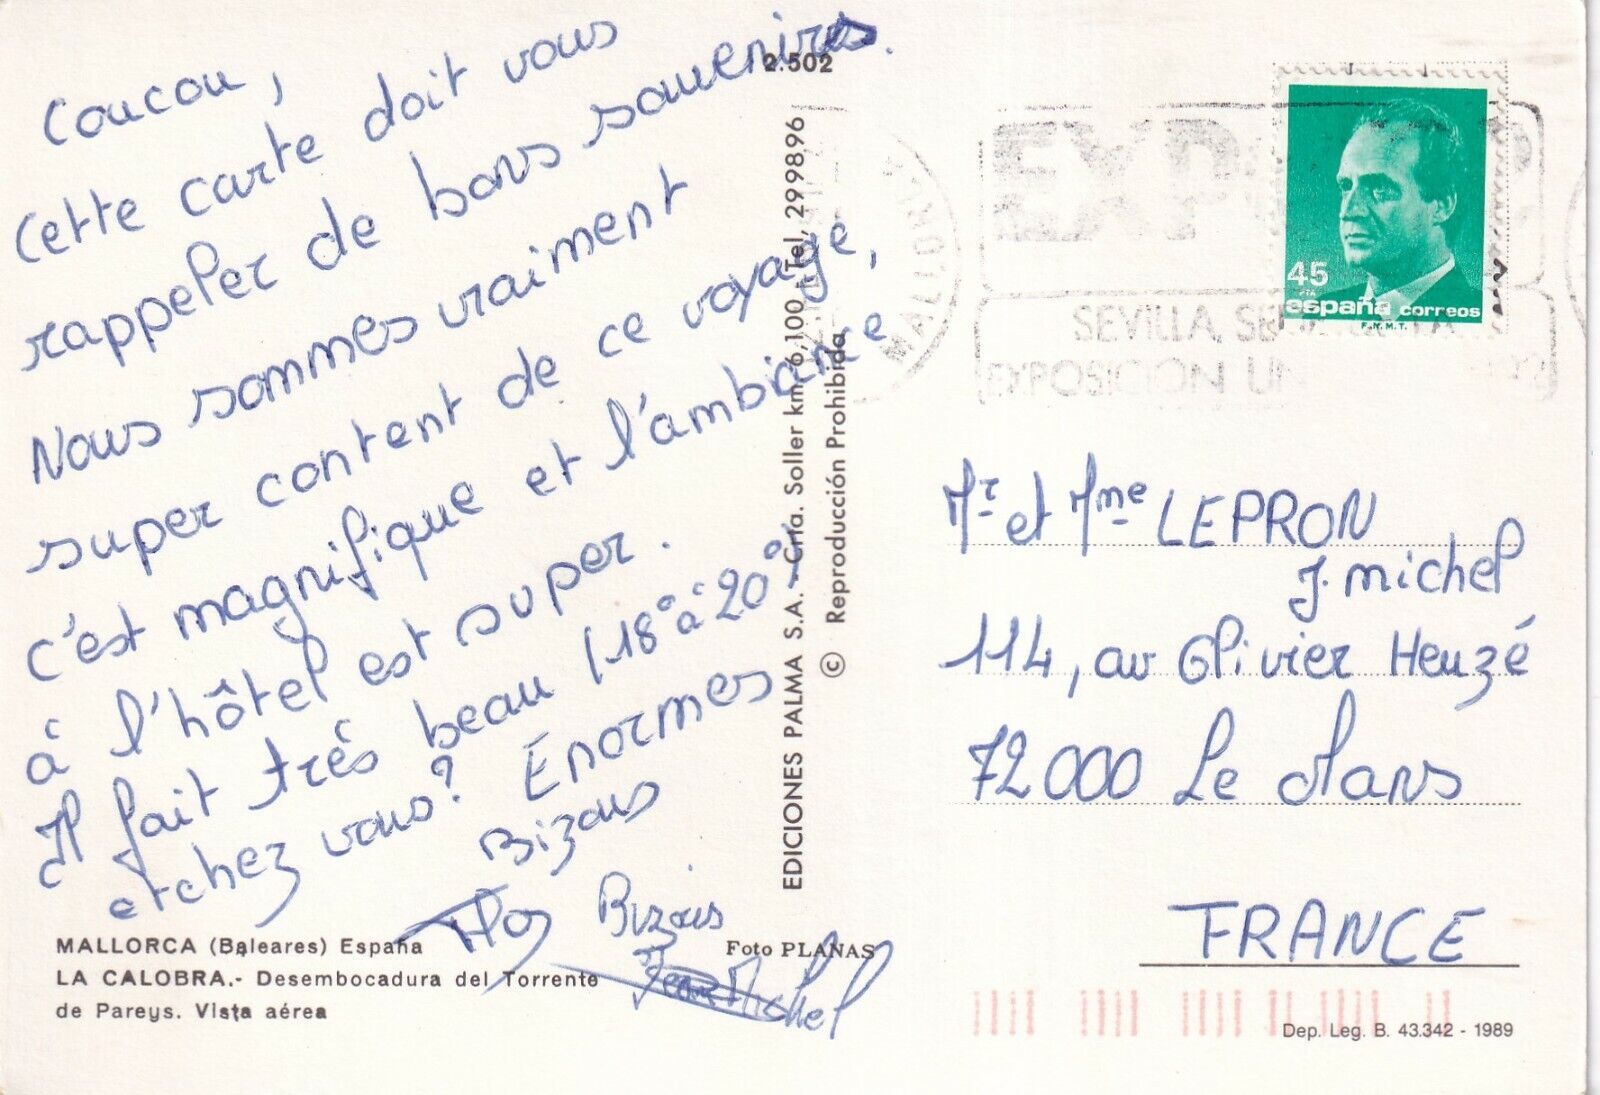 Coucou,
Cette carte doit vous
rappeler de bons souvenirs.
Nous sommes vraiment
super content de ce voyage,
c'est magnifique et l'ambiance
à l'hôtel est super.
Il fait très beau (18° à 20°)
et chez vous? Énormes
Bizous
Flo
Bizous
Jean Michel
MALLORCA (Baleares) España
LA CALOBRA.- Desembocadura del Torrente
de Pareys. Vista aérea
Foto PLANAS
2.502
EDICIONES PALMA S.A. - Crta. Soller km. 6,100 - Tel, 299896
© Reproducción Prohibida
MALLORCA
EXP
SEVILLA, SE
EXPOSICION UN
45
PTA
españa correos
F.N.M.T.
Mr et Mme LEPRON
J. Michel
114, av Olivier Heuzé
72000 Le Mans
FRANCE
Dep. Leg. B. 43.342 - 1989